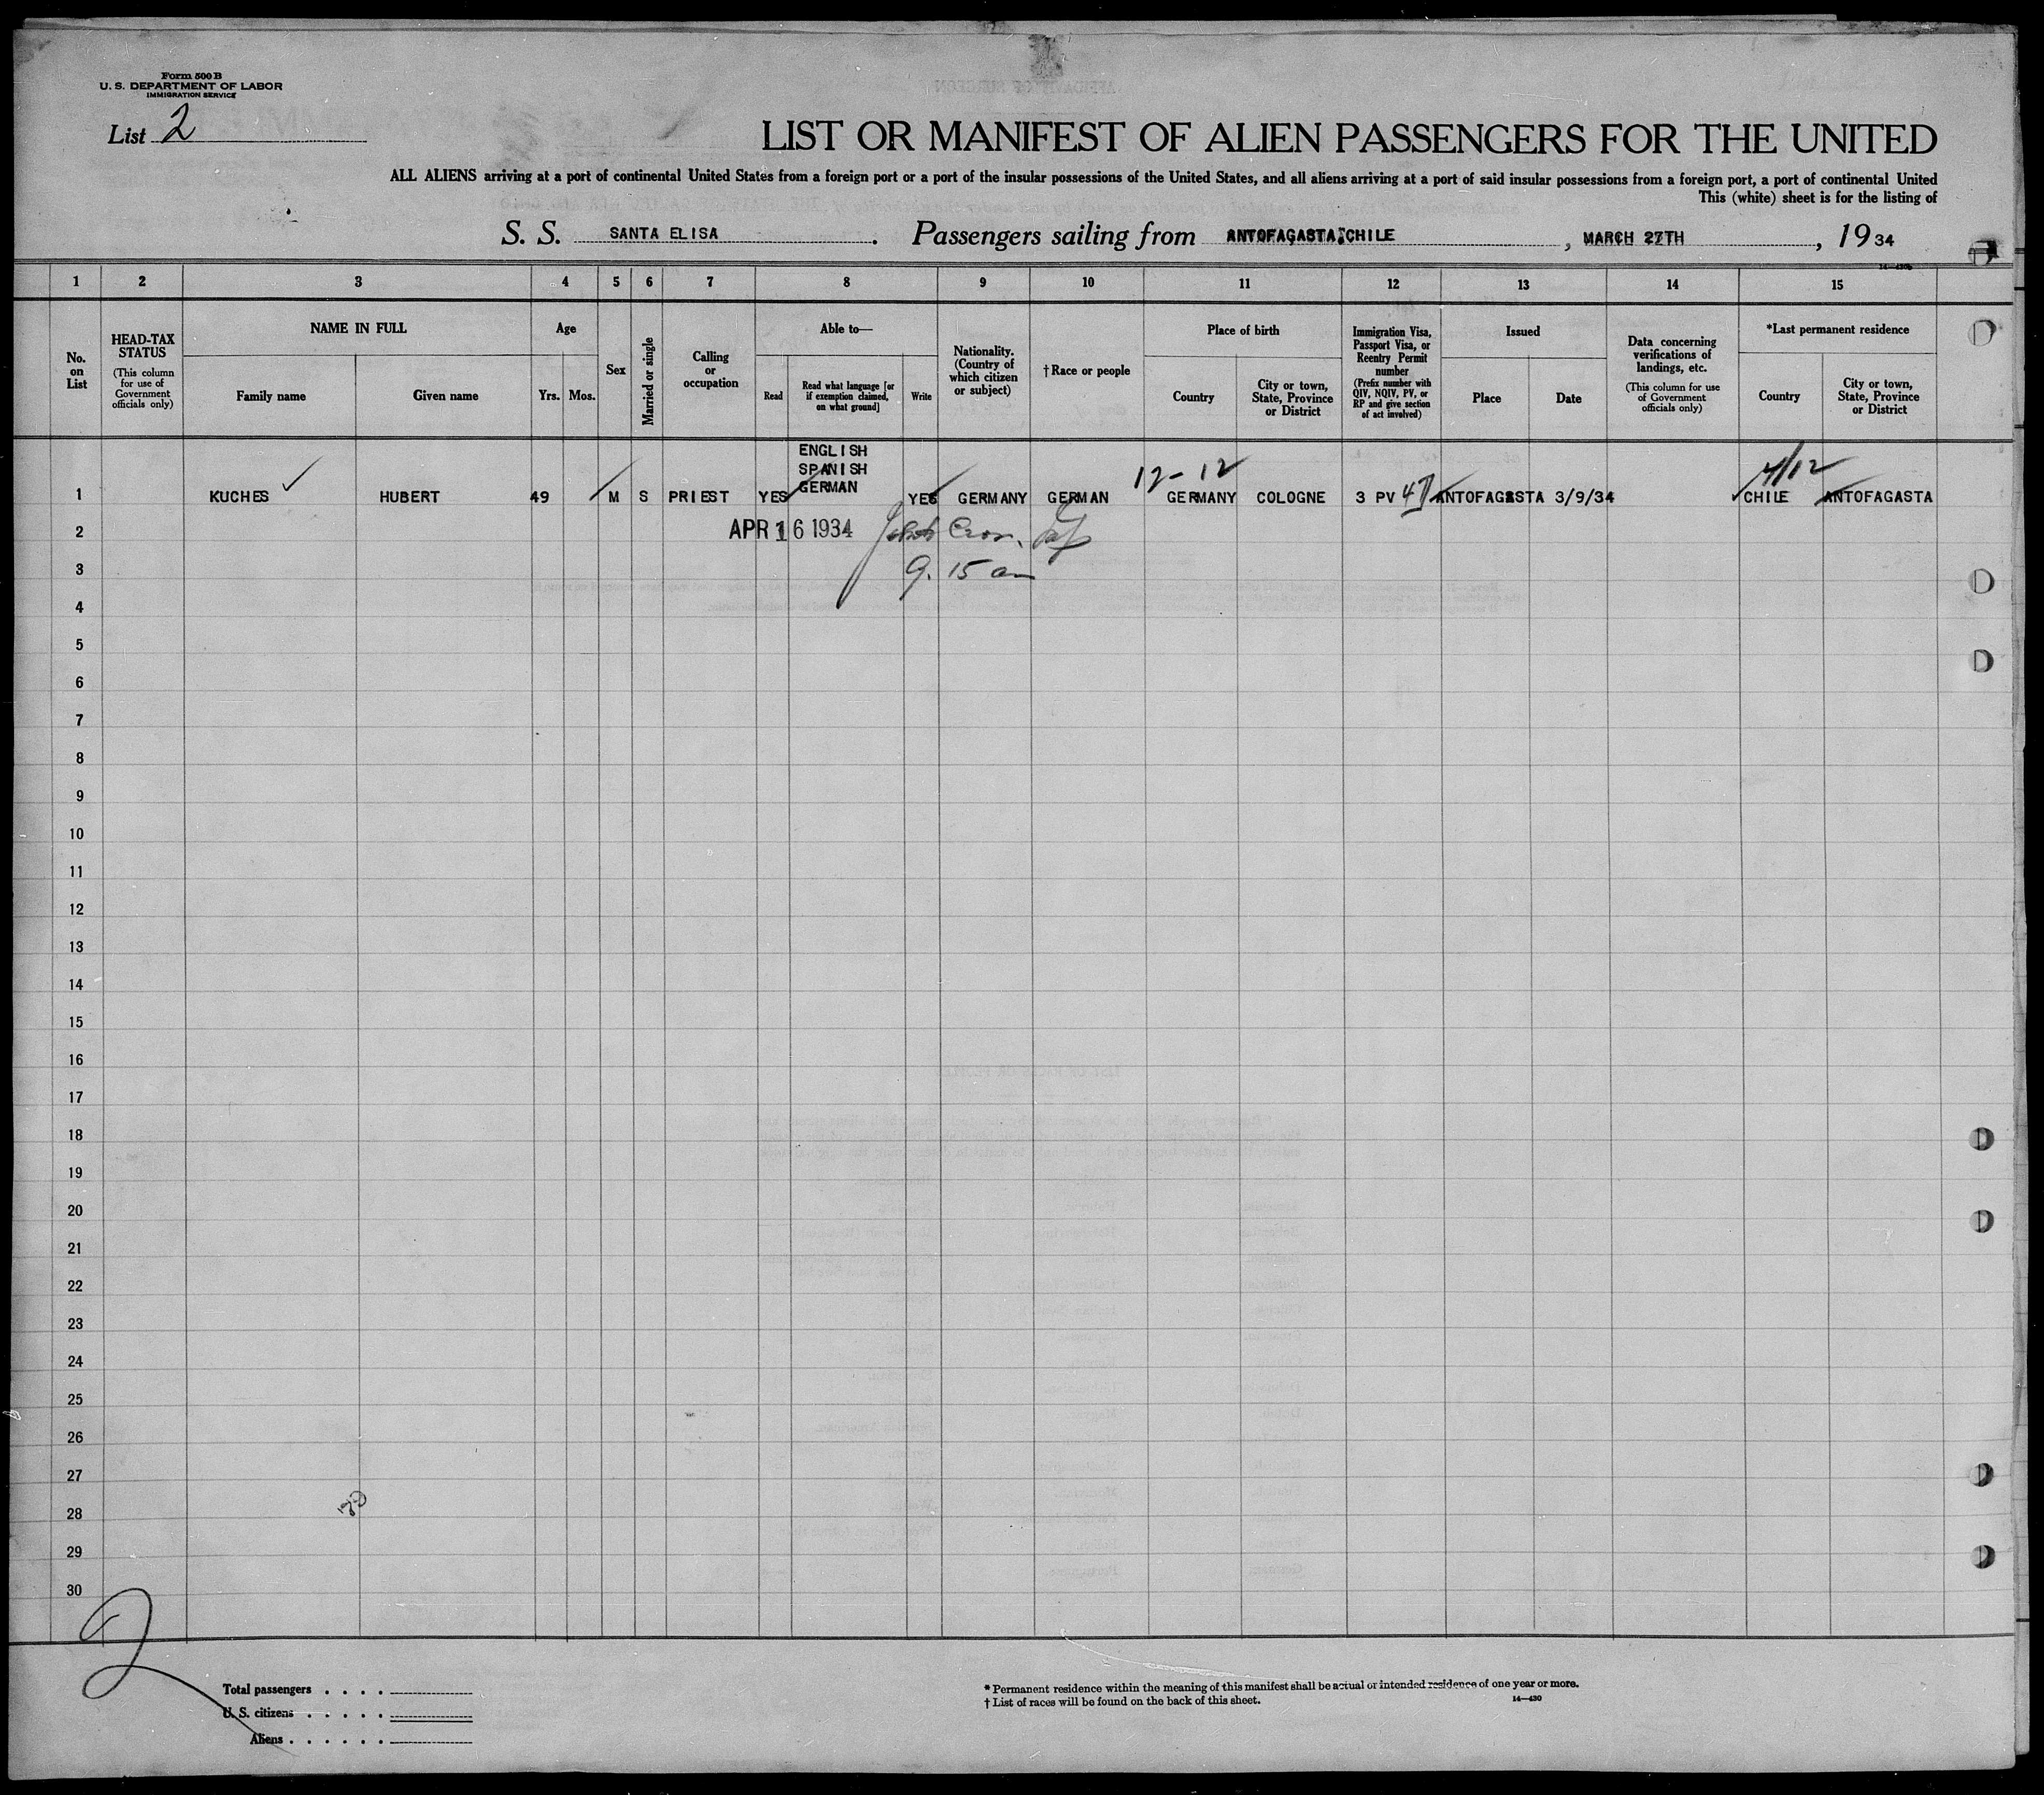 Form 500 B
U. S. DEPARTMENT OF LABOR
IMMIGRATION SERVICE
List 2
LIST OR MANIFEST OF ALIEN PASSENGERS FOR THE UNITED
ALL ALIENS arriving at a port of continental United States from a foreign port or a port of the insular possessions of the United States, and all aliens arriving at a port of said insular possessions from a foreign port, a port of continental United
This (white) sheet is for the listing of
S. S. SANTA ELISA. Passengers sailing from ANTOFAGASTA, CHILE, MARCH 27TH, 1934
14—430b
1 2 3 4 5 6 7 8 9 10 11 12 13 14 15
No. on List
HEAD-TAX STATUS
(This column for use of Government officials only)
NAME IN FULL
Family name
Given name
Age
Yrs. Mos.
Sex
Married or single
Calling or occupation
Able to—
Read
Read what language [or if exemption claimed, on what ground]
Write
Nationality. (Country of which citizen or subject)
† Race or people
Place of birth
Country
City or town, State, Province or District
Immigration Visa, Passport Visa, or Reentry Permit number
(Prefix number with QIV, NQIV, PV, or RP and give section of act involved)
Issued
Place
Date
Data concerning verifications of landings, etc.
(This column for use of Government officials only)
*Last permanent residence
Country
City or town, State, Province or District
ENGLISH
SPANISH
GERMAN
12-12
4/12
1 KUCHES HUBERT 49 M S PRIEST YES YES GERMANY GERMAN GERMANY COLOGNE 3 PV 47 ANTOFAGASTA 3/9/34 CHILE ANTOFAGASTA
2 APR 16 1934
3 9.15 am
4
5
6
7
8
9
10
11
12
13
14
15
16
17
18
19
20
21
22
23
24
25
26
27
28
29
30
2
Total passengers . . . .
U. S. citizens . . . . .
Aliens . . . . . .
* Permanent residence within the meaning of this manifest shall be actual or intended residence of one year or more.
† List of races will be found on the back of this sheet.
14—430